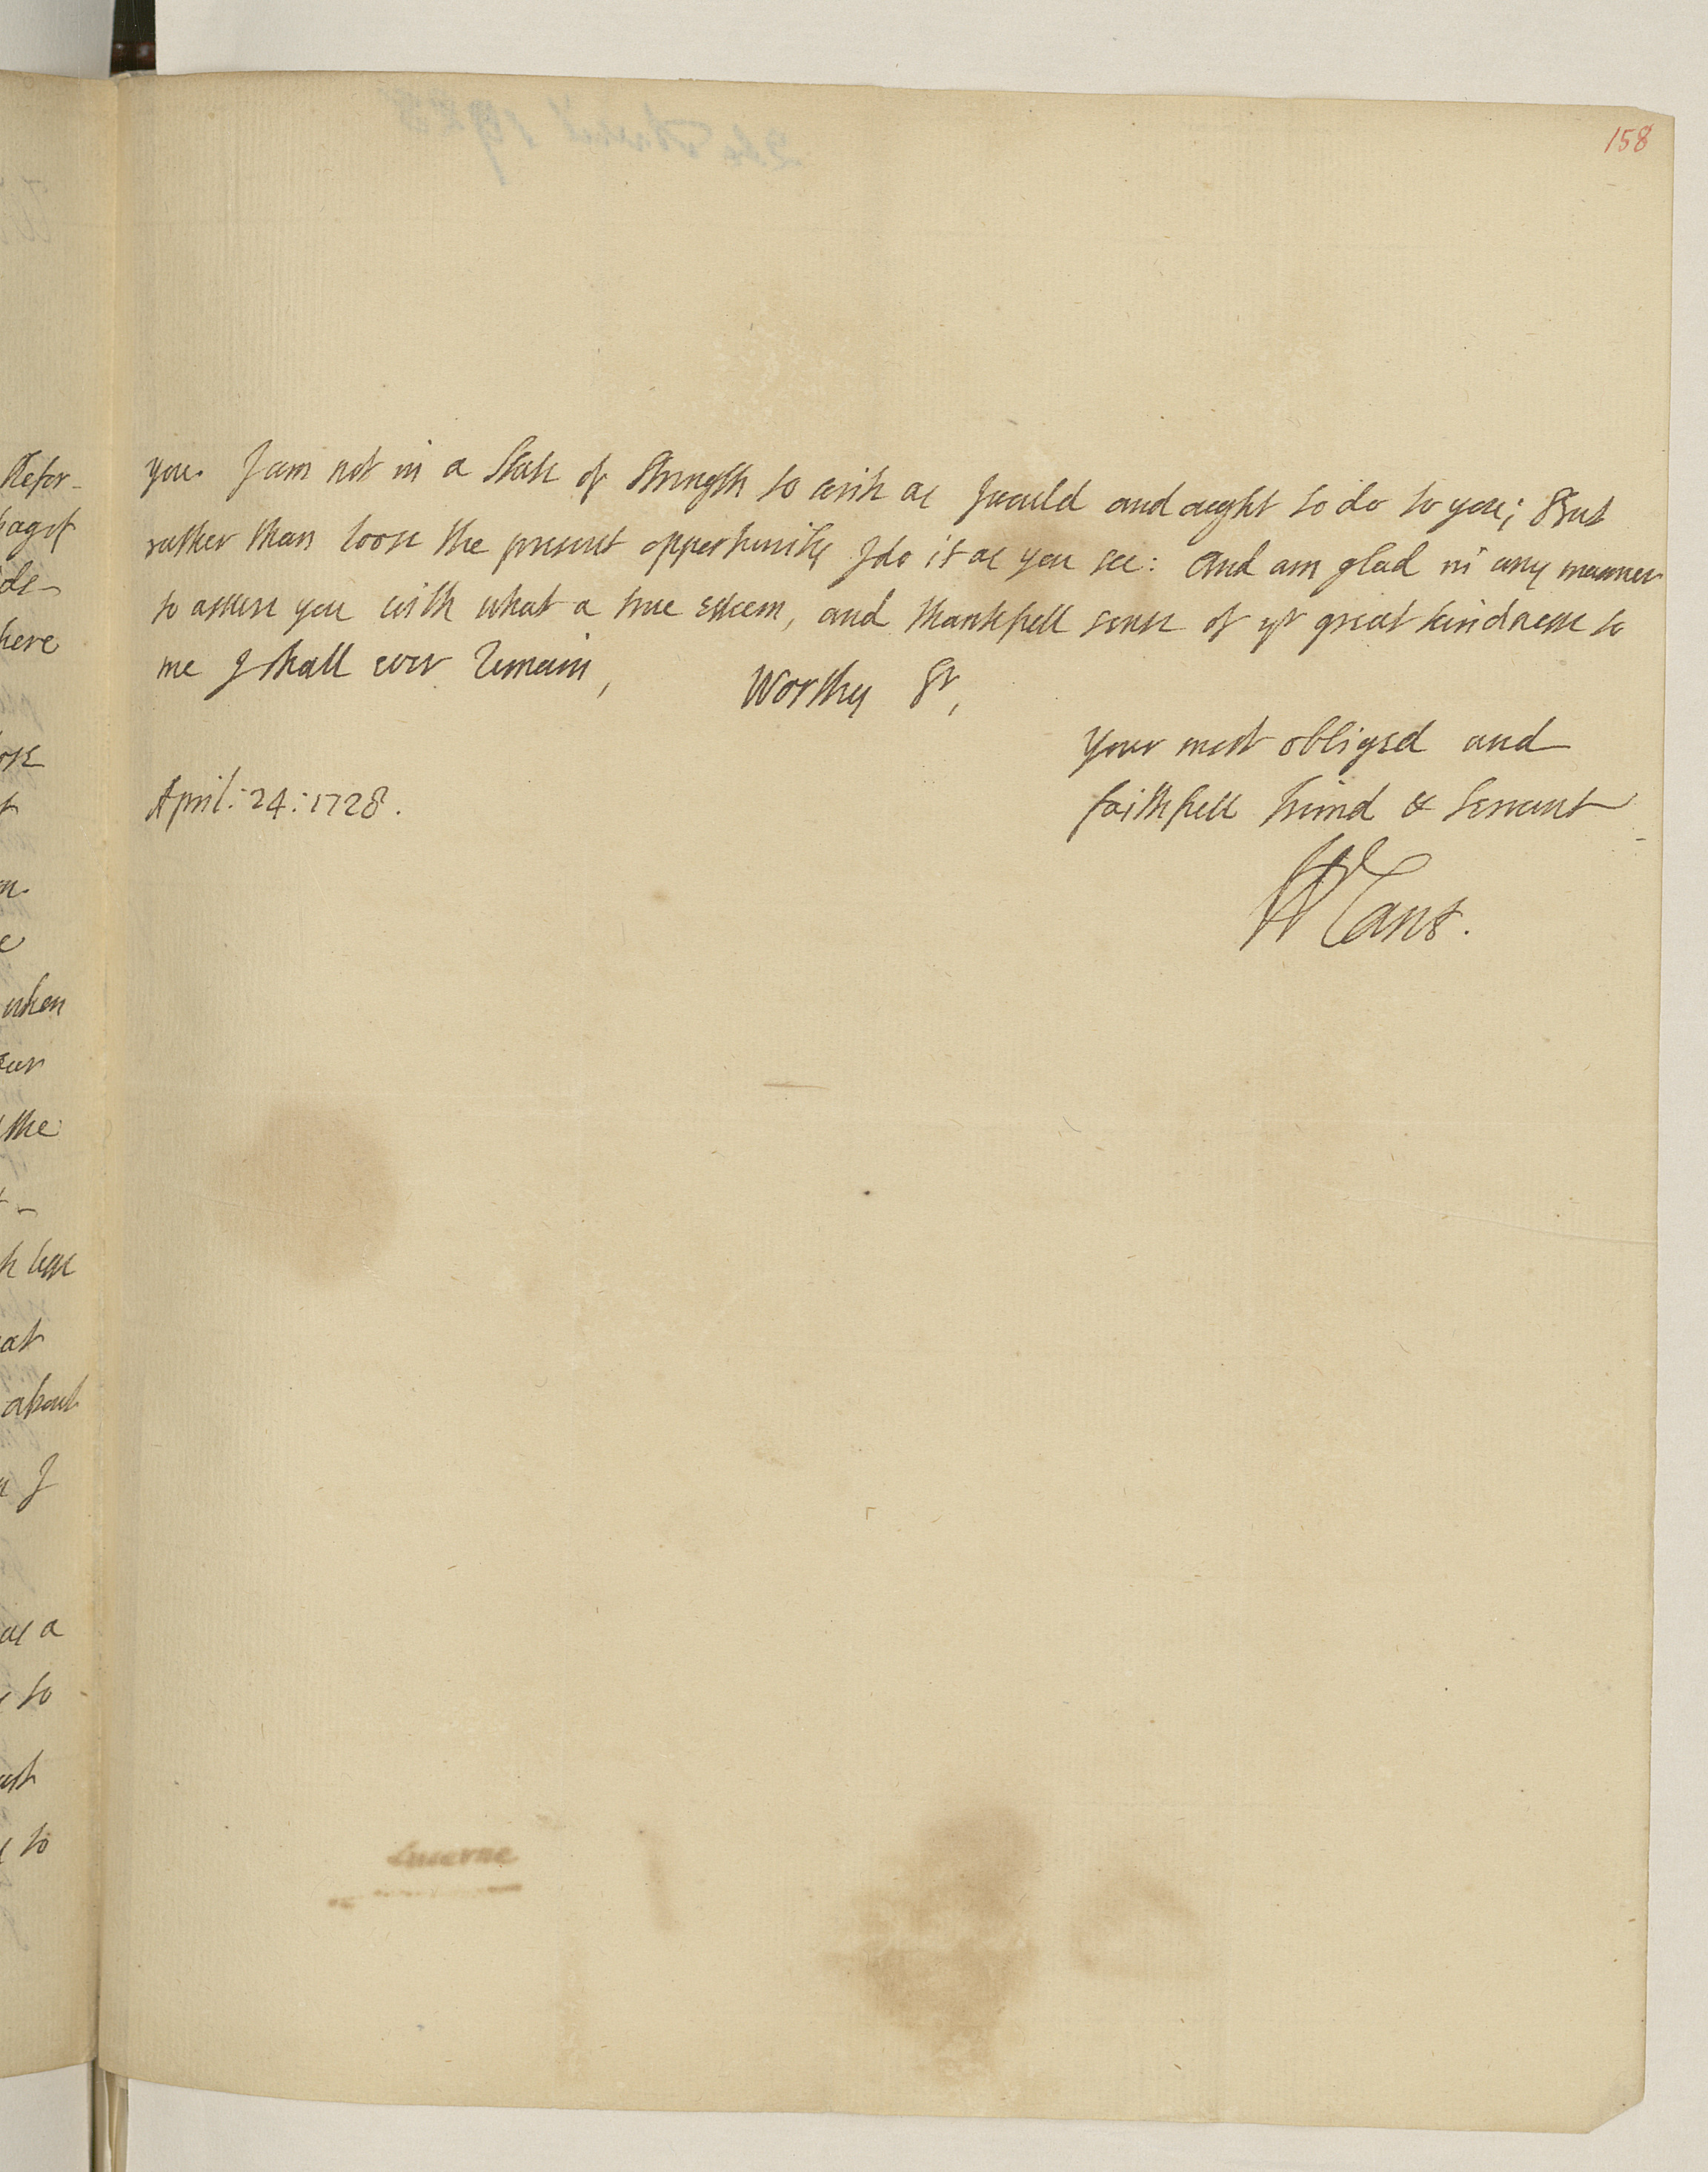 158
you. I am not in a State of Strength to write as I would and ought to do to you; But
rather than loose the present opportunity I do it as you see: And am glad in any manner
to assure you with what a true esteem, and thankfull sense of yr great kindness to
me I shall ever remain,
Worthy Sr,
Your most obliged and
faithfull friend & Servant
April: 24: 1728.
W Cant.
Lucerne
Refor-
here
when
the
about
I
as a
to
to